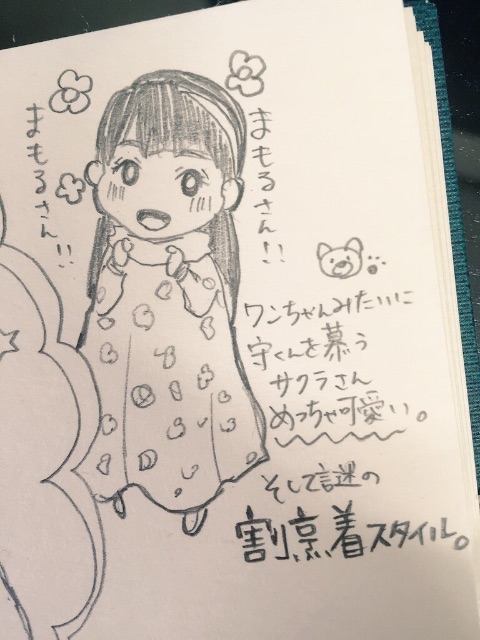 まもるさん!!
まもるさん!!
ワンちゃんみたいに
守くんを慕う
サクラさん
めっちゃ可愛い。
そして謎の
割烹着スタイル。